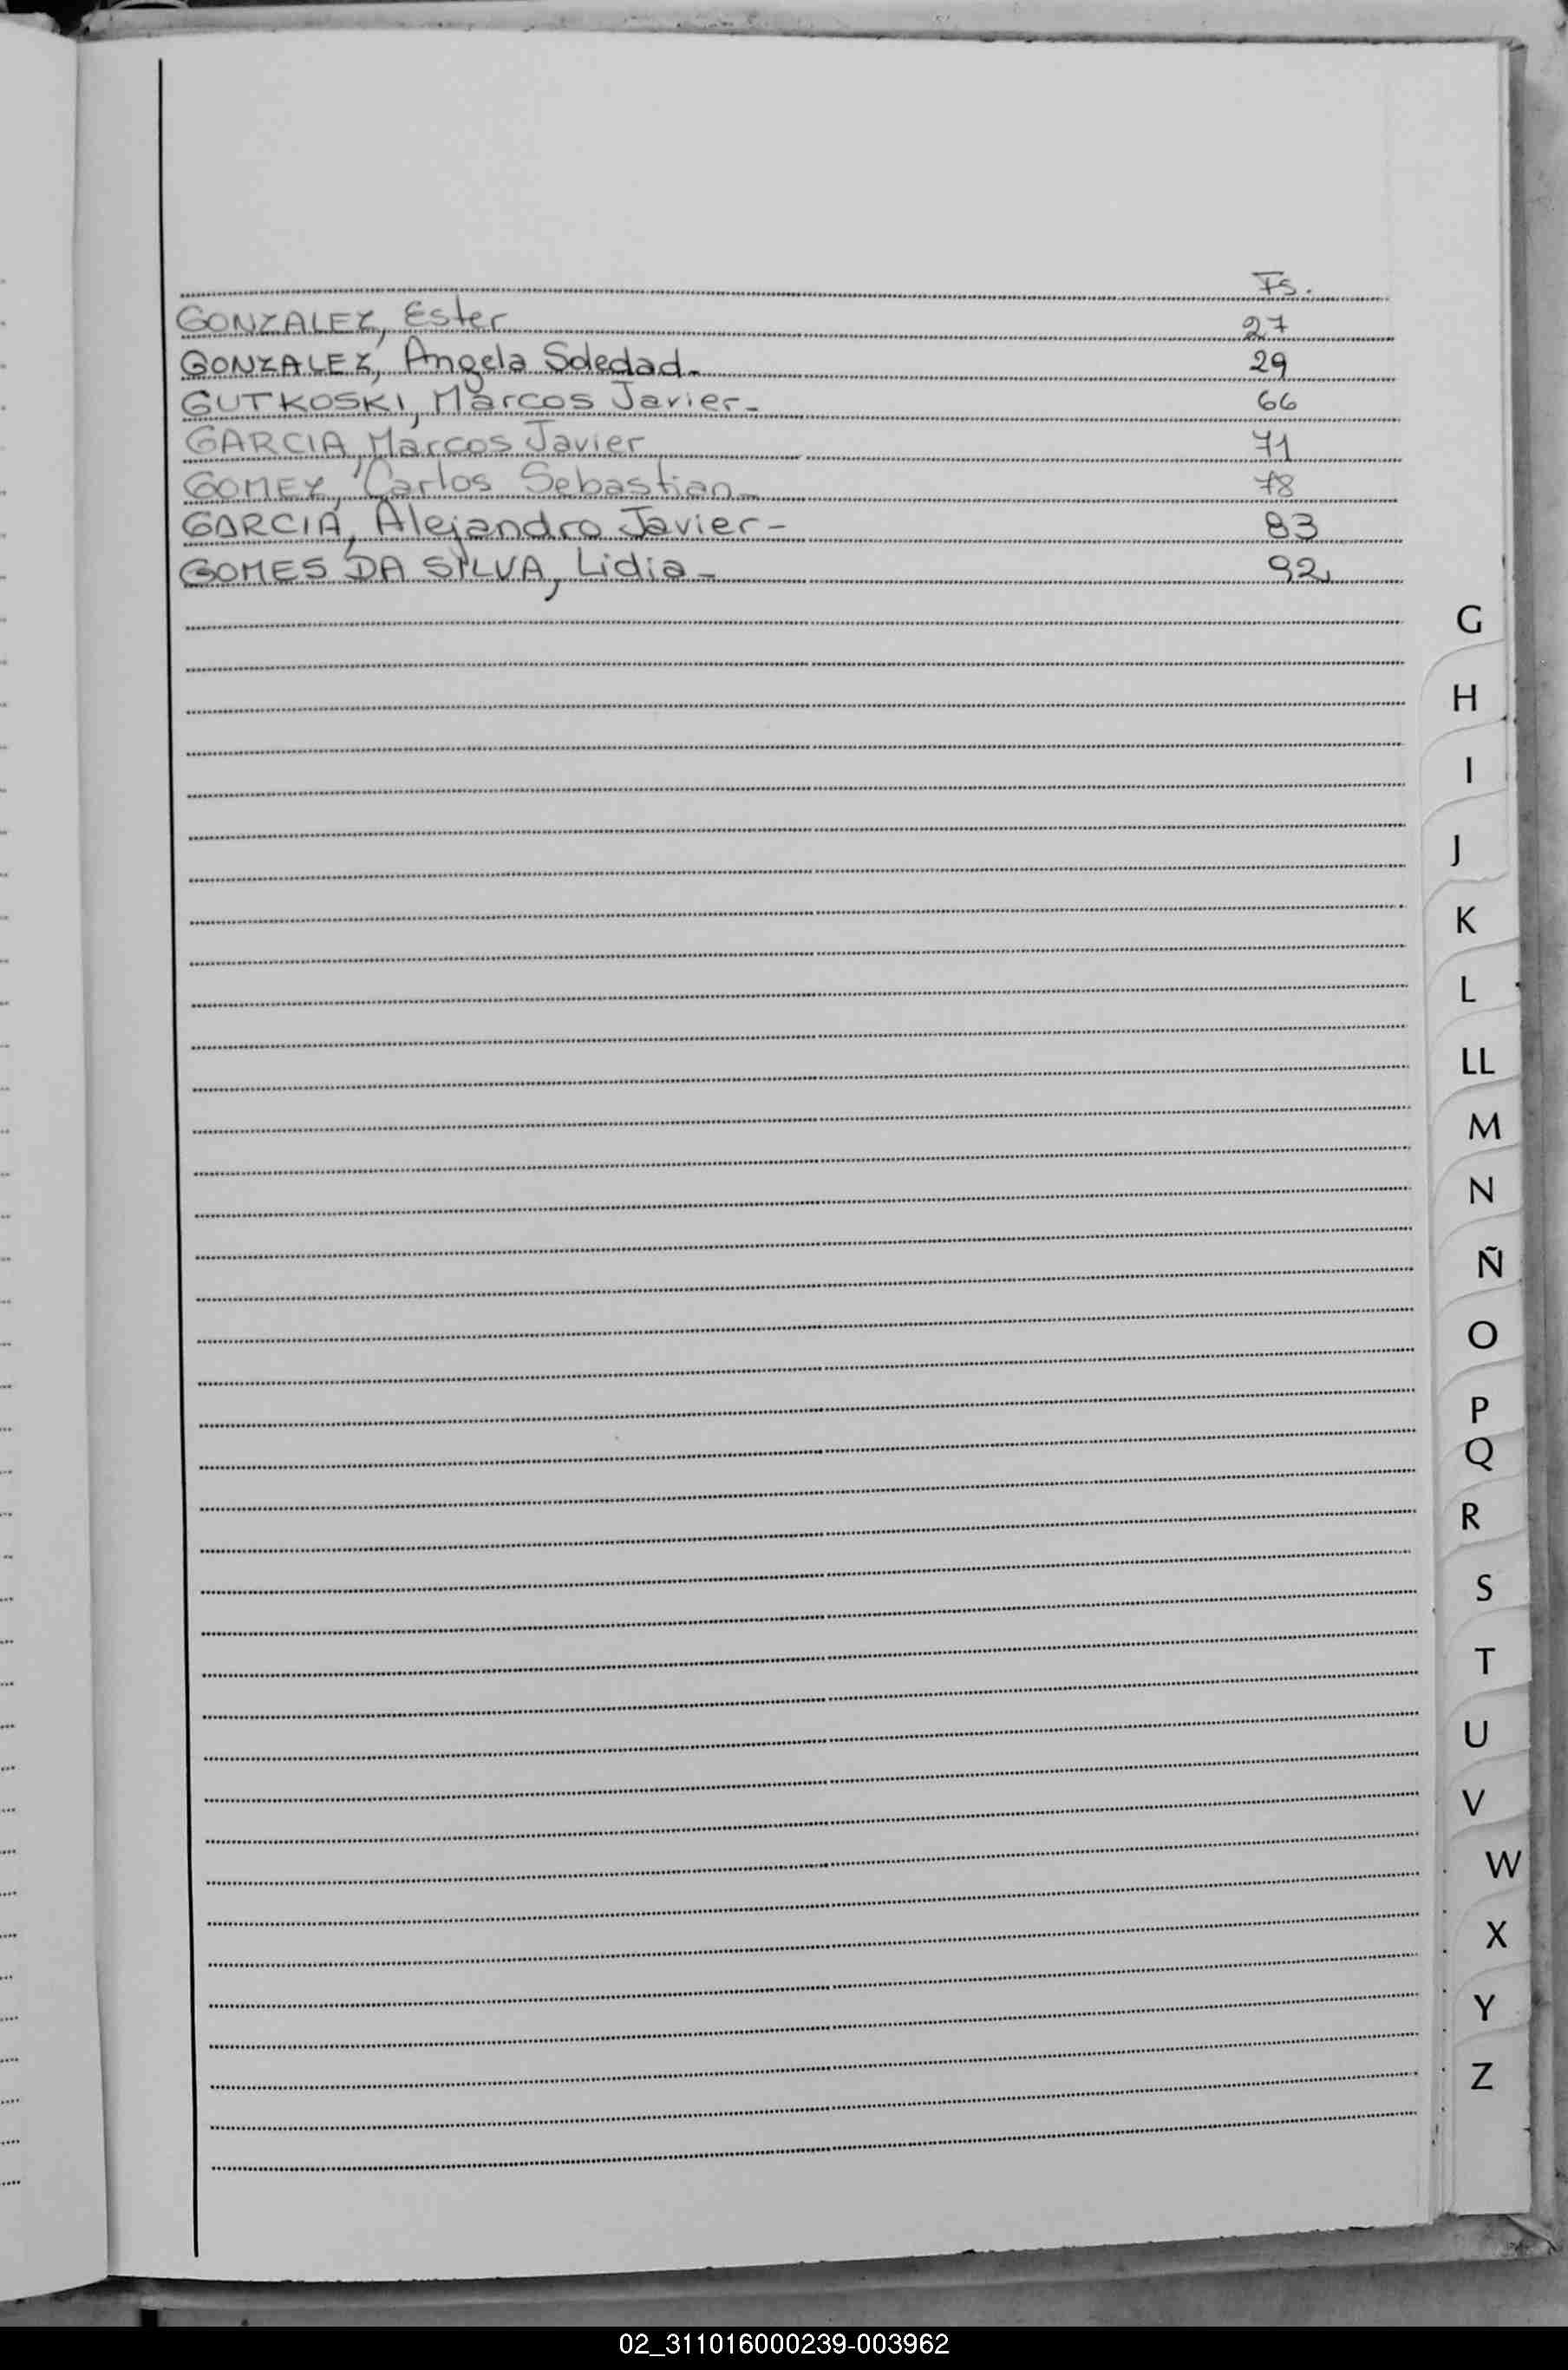 Fs.
GONZALEZ, Ester 27
GONZALEZ, Angela Soledad- 29
GUTKOSKI, Marcos Javier- 66
GARCIA, Marcos Javier 71
GOMEZ, Carlos Sebastian- 78
GARCIA, Alejandro Javier- 83
GOMES DA SILVA, Lidia- 92
G
H
I
J
K
L
LL
M
N
Ñ
O
P
Q
R
S
T
U
V
W
X
Y
Z
02_311016000239-003962